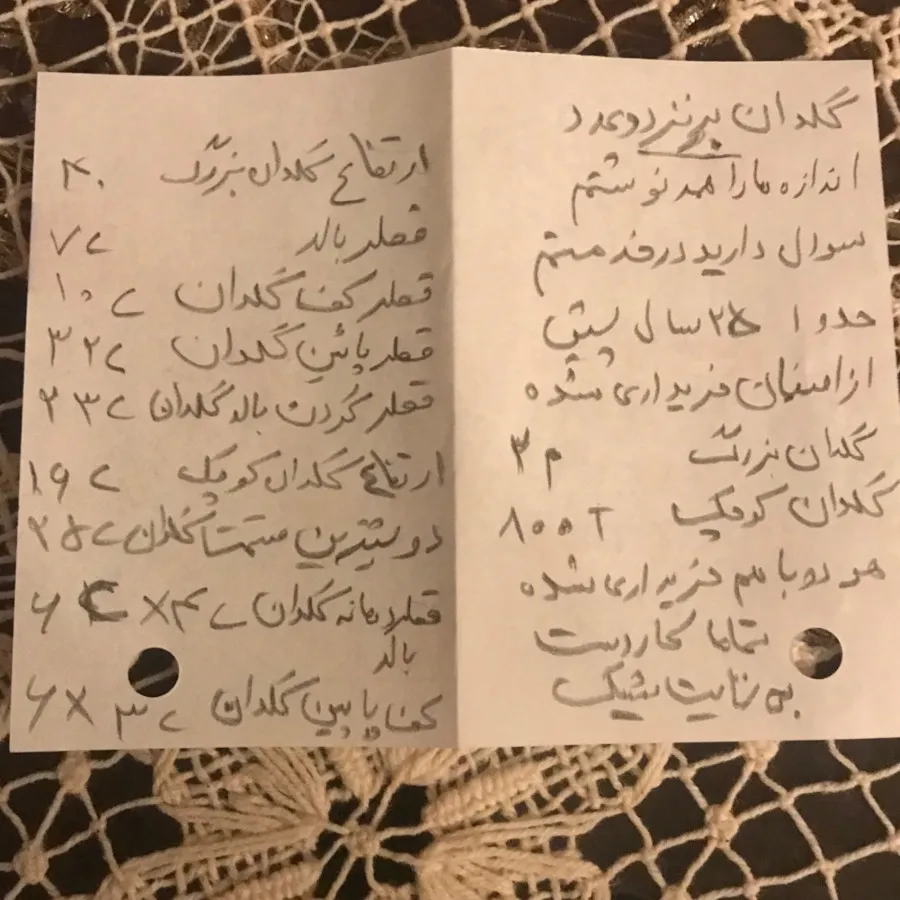 گلدان برنز دو عدد
اندازه ها را همه نوشتم
سوال دارید در خدمتم
حدودا ۲۵ سال پیش
از اصفهان خریداری شده
گلدان بزرگ ۳ م
گلدان کوچک ۸۰۰ T
هر دو با هم خریداری شده
تماما کار دست
بی نهایت شیک
ارتفاع گلدان بزرگ ۴۰
قطر بالا ۷ س
قطر کف گلدان ۱۰ س
قطر پائین گلدان ۳۲ س
قطر گردن بالا گلدان ۲۳ س
ارتفاع گلدان کوچک ۱۹ س
دور بیشترین قسمت گلدان ۲۵ س
قطر دهانه گلدان ۴ س X ۶
بالا
کف پایین گلدان ۳ س X ۶